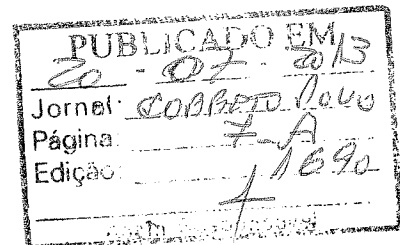 PUBLICADO EM
20 - 07 - 2013
Jornal: CORREIO DO POVO
Página: 7-A
Edição: 1690